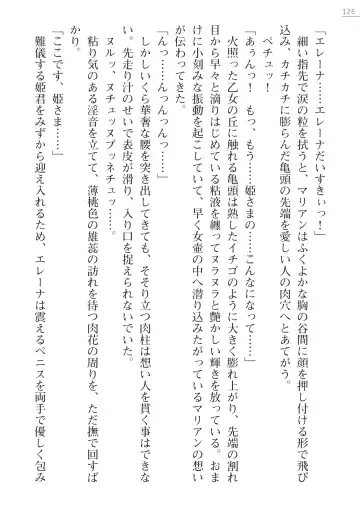 126
「エレーナ……エレーナだいすきぃっ！」
細い指先で涙の粒を拭うと、マリアンはふくよかな胸の谷間に顔を押し付ける形で飛び
込み、カチカチに膨らんだ亀頭の先端を愛しい人の肉穴へとあてがう。
ペチュッ！
「あぅんっ！　もっ、もう……姫さまの……こんなになって……」
火照った乙女の丘に触れる亀頭は熟したイチゴのように大きく膨れ上がり、先端の割れ
目から早々と滴りはじめている粘液を纏ってヌラヌラと艶かしい輝きを放っている。おま
けに小刻みな振動を起こしていて、早く女壷の中へ潜り込みたがっているマリアンの想い
が伝わってきた。
「んっ……んっんっんっ……」
しかしいくら華奢な腰を突き出してきても、そそり立つ肉柱は想い人を貫く事はできな
い。先走り汁のせいで表皮が滑り、入り口を捉えられないでいた。
ヌルッ、ヌチュッヌプッネチュッ……。
粘り気のある淫音を立てて、薄桃色の雄蕊の訪れを待つ肉花の周りを、ただ撫で回すば
かり。
「ここです、姫さま……」
難儀する姫君をみずから迎え入れるため、エレーナは震えるペニスを両手で優しく包み